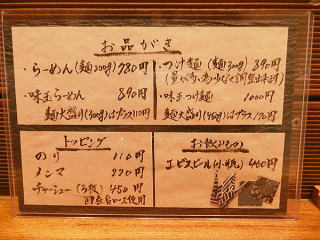 お品がき
・らーめん(麺200g) 780円
・味玉らーめん 890円
麺大盛り(300g)はプラス110円
・つけ麺(麺300g) 890円
・味玉つけ麺 1000円
麺大盛り(450g)はプラス170円
トッピング
のり 110円
メンマ 220円
チャーシュー(3枚) 450円
国産肩ロース使用
お飲みもの
エビスビール(小瓶) 460円